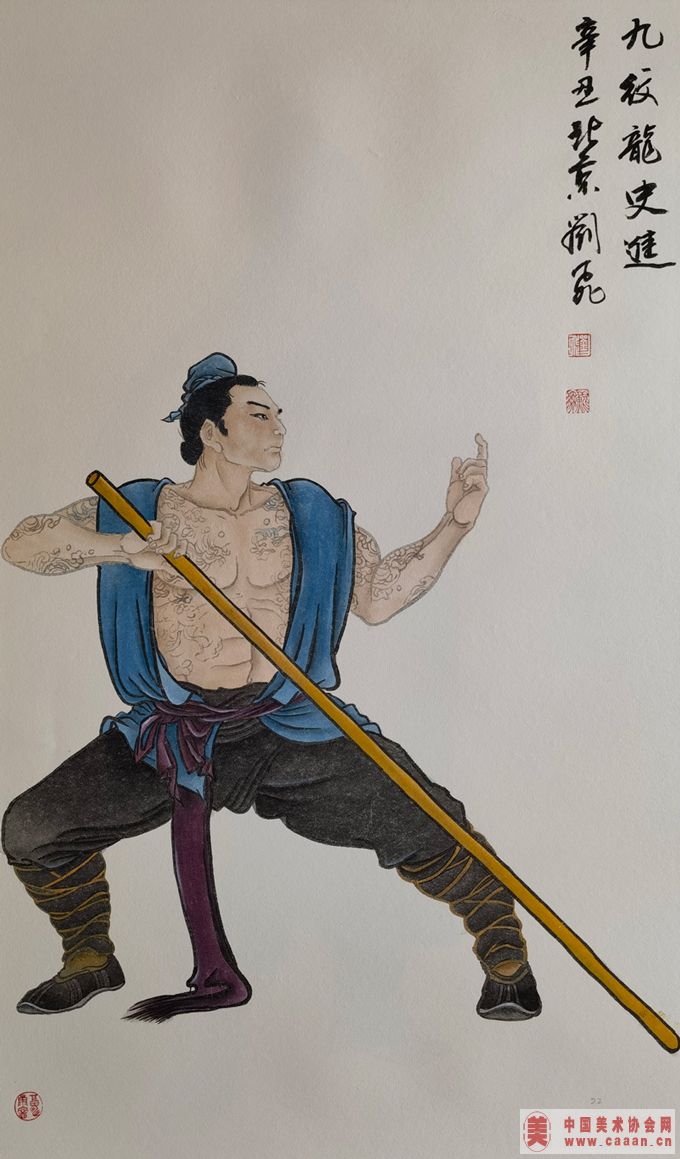 九纹龍史進
辛丑北京劉飛
22
美
中国美术协会网
www.caaan.cn